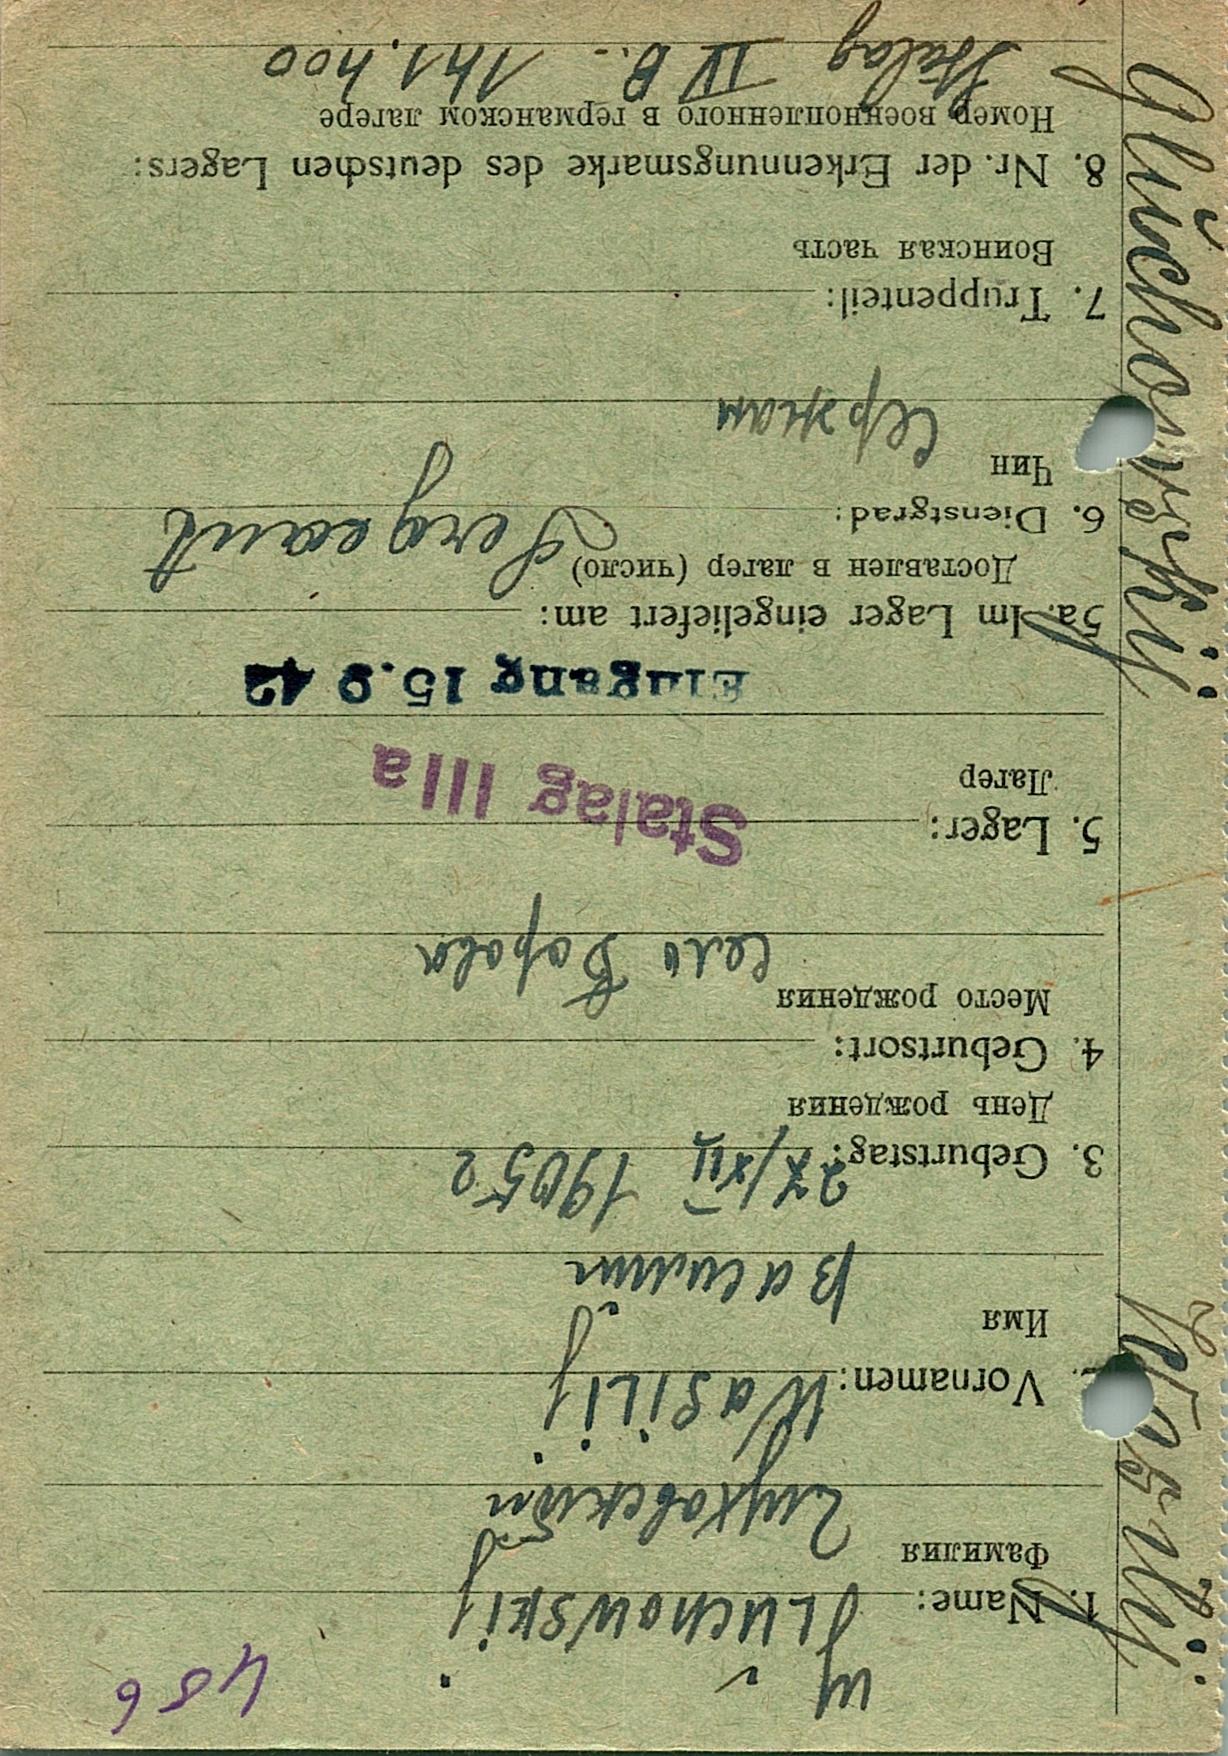 486
1. Name: Gluchowskij
Фамилия Глуховский
2. Vornamen: Wasilij
Имя Василий
3. Geburtstag: 27/XII 1905 г
День рождения
4. Geburtsort:
Место рождения Село
5. Lager: Stalag IIIa
Лагер
Eingang 15.9 42
5a. Im Lager eingeliefert am:
Доставлен в лагер (число)
6. Dienstgrad: Sergeant
Чин Сержан
7. Truppenteil:
Воинская часть
8. Nr. der Erkennungsmarke des deutschen Lagers:
Номер военнопленного в германском лагере
Stalag IV B.- 141.400
Wasilij Glŭchowskij